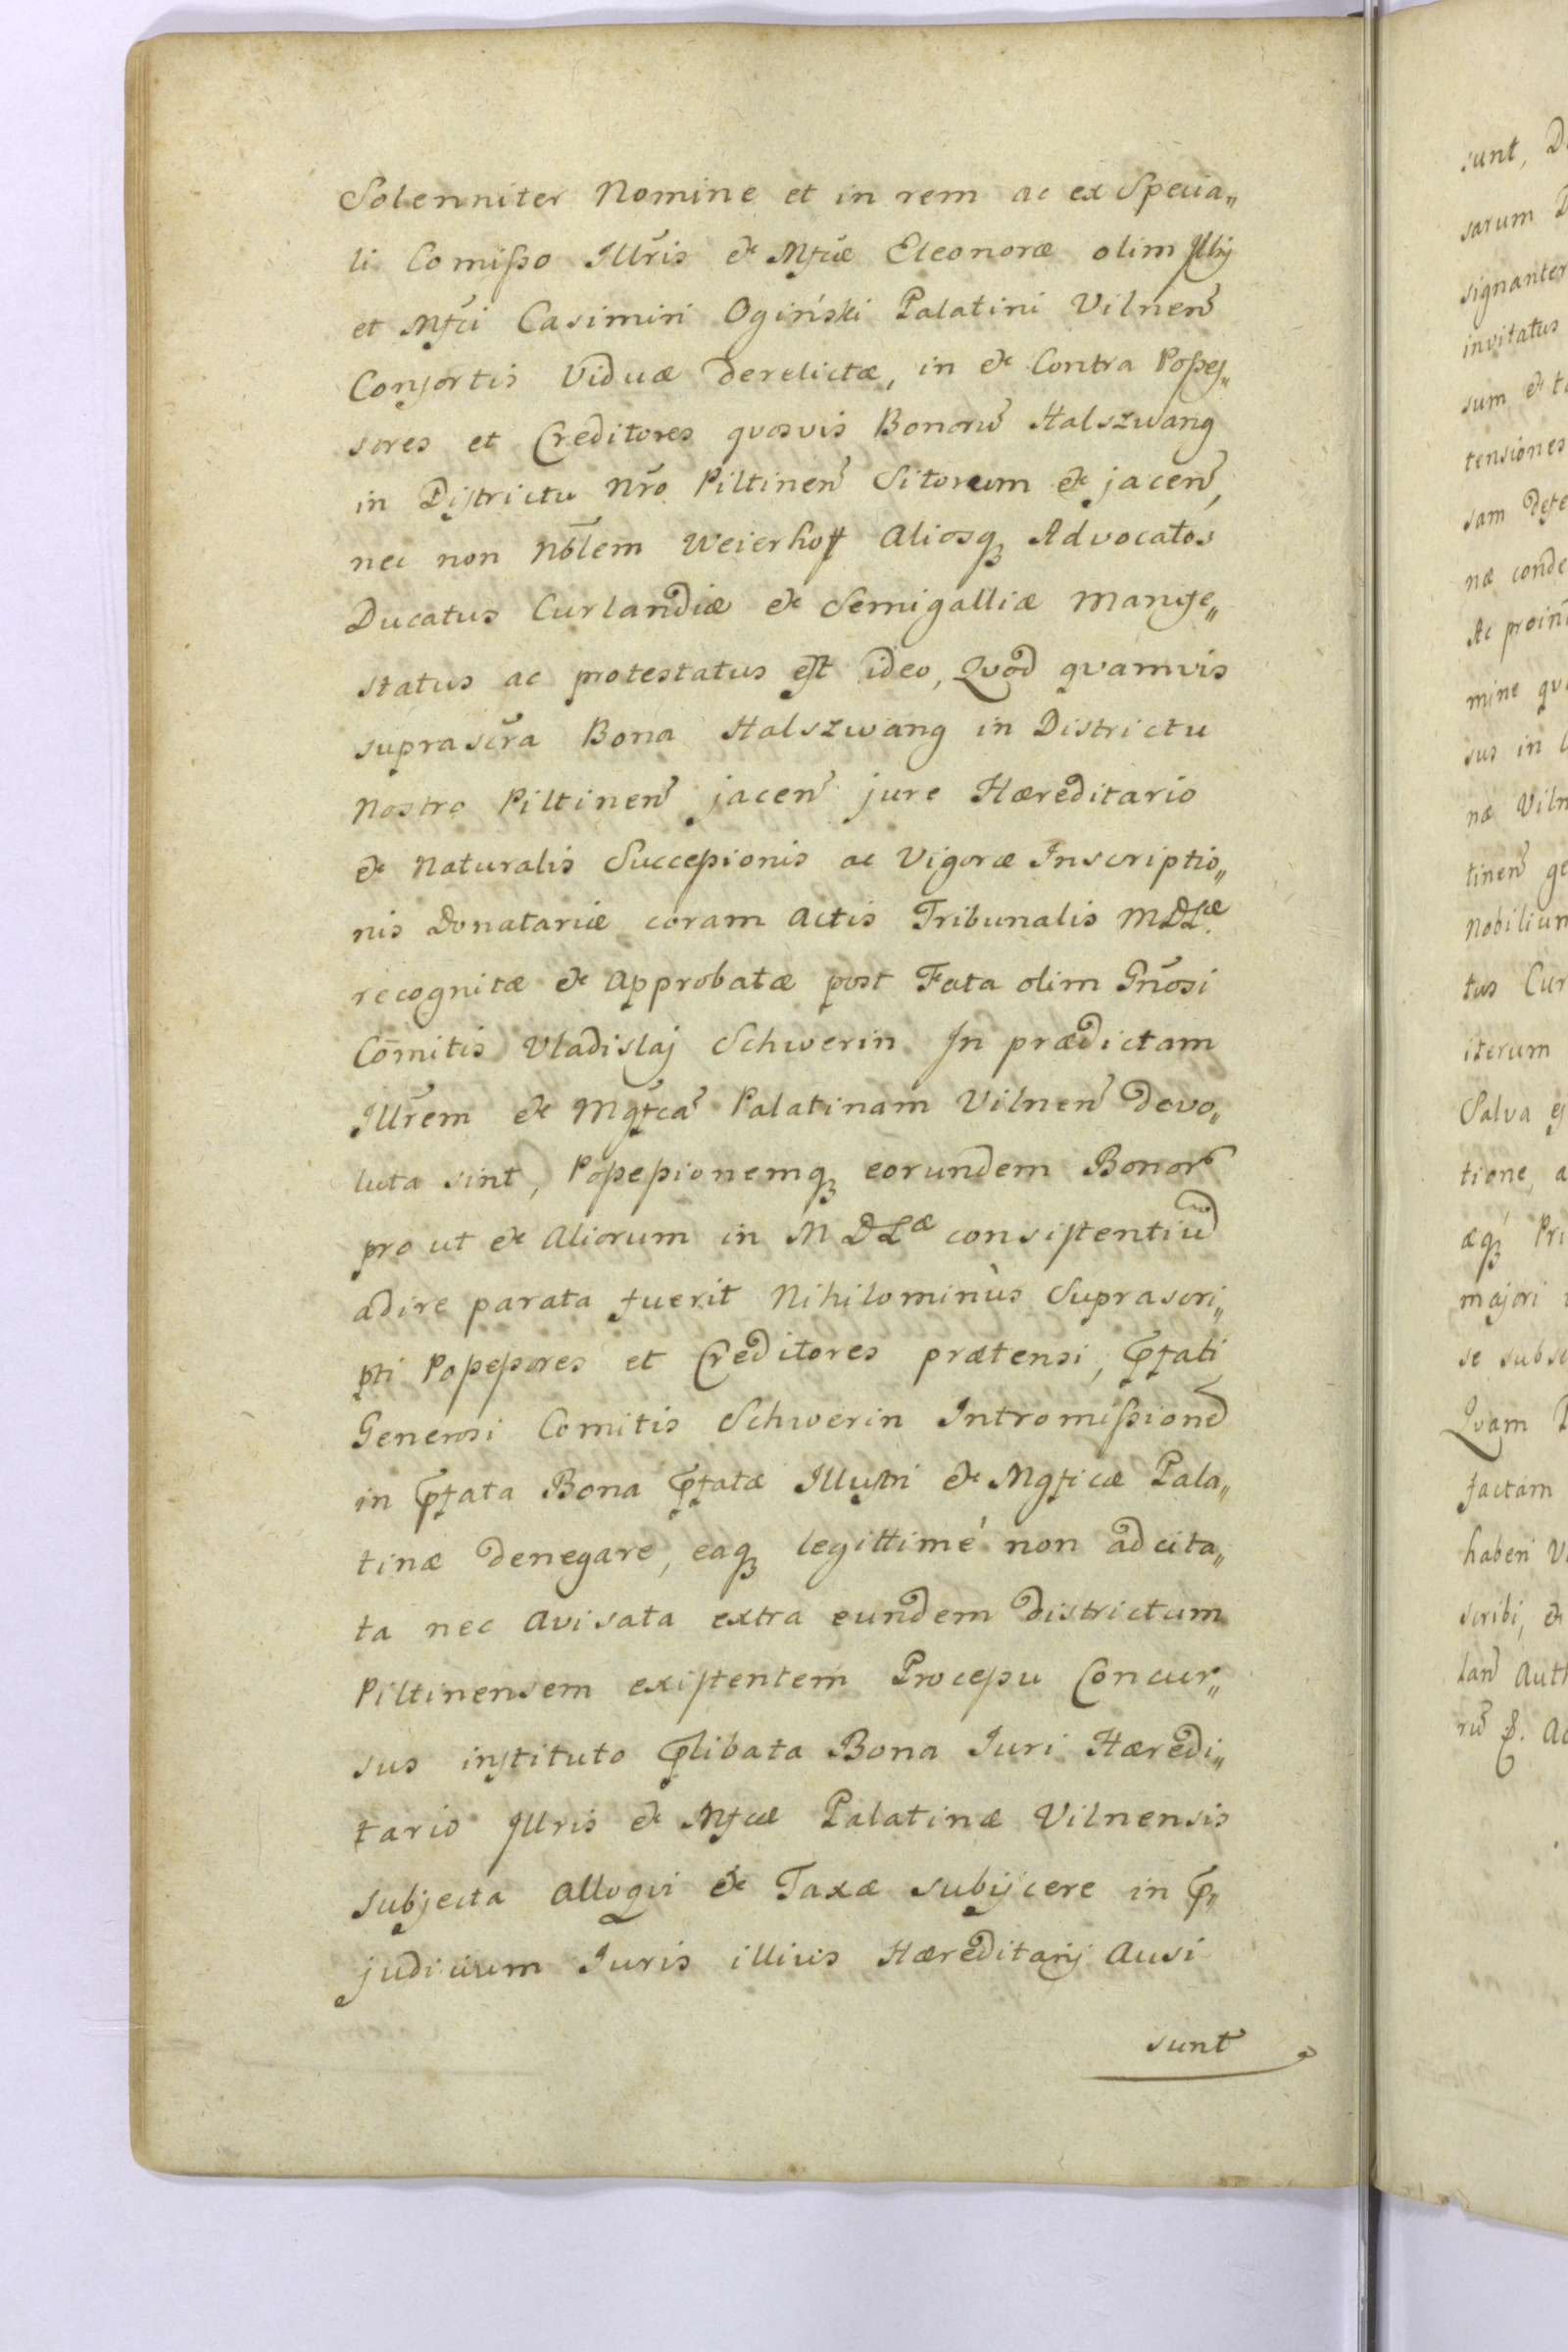 Solenniter Nomine et in rem ac ex Specia„
li Comisso Illr̃is & Mfcæ Eleonoræ olim Illis
et Mfci Casimiri Ogiński Palatini Vilnen̄
Consortis Viduæ derelictæ, in & Contra Posses„
sores et Creditores quosvis Bonorū Halszwang
in Districtu Nr̃o Piltinen̄ Sitorum & jacen̄,
nec non Nõlem Weierhoff Aliosq Advocatos
Ducatus Curlandiæ & Semigalliæ Manife„
status ac protestatus est ideo, Quod quamvis
suprascr̃a Bona Halszwang in Districtu
Nostro Piltinen̄ jacen̄ jure Hæreditario
& Naturalis Successionis ac Vigoræ Inscriptio„
nis Donatariæ coram Actis Tribunalis MDLæ
recognitæ & Approbatæ post Fata olim Gñosi
Com̄itis Vladislaj Schwerin In prædictam
Illr̃em & Mgfcã Palatinam Vilnen̄ devo„
luta sint, Possessionemq eorundem Bonor̃
pro ut & Aliorum in MDLæ consistentiū
adire parata fuerit Nihilominùs Suprascri„
pti Possessores et Creditores prætensi, p̃fati
Generosi Comitis Schwerin Intromissionē
in p̃fata Bona p̃fatæ Illustri & Mgficæ Pala„
tinæ denegare, eaq legittimé non adcita„
ta nec Avisata extra eundem districtum
Piltinensem existentem Processu Concur„
sus instituto p̃libata Bona Iuri Hæredi„
tario Illris & Mfcæ Palatinæ Vilnensis
subjecta Alloqvi & Taxæ subijcere in p̃„
judicium Iuris illius Hæreditarij Ausi
sunt
sunt, D
sarum D
signanter
invitatus
sum & t
tensiones
sam defe
næ conde
Ac proin
mine qv
sus in
næ Viln
tinen̄ ge
Nobilium
tus Cur
iterum
Salva ej
tione, a
æq Pri
majori
se subs
Qvam
factam
haberi V
scribi, &
lan̄ Auth